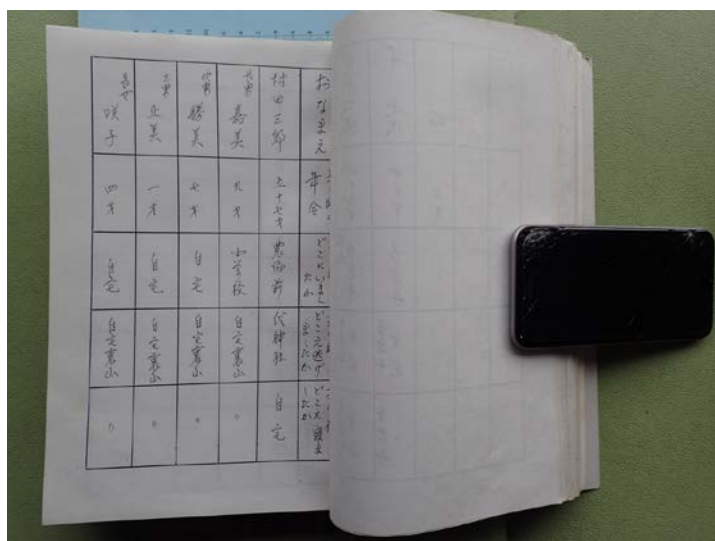 おなまえ
年令
どこにいまし
たか
どこえ逃げ
ましたか
どこえ
したか
村田三郎
五十七才
農協前
代神社
自宅
長男
嘉美
九才
小学校
自宅裏山
〃
次男
勝美
七才
自宅
自宅裏山
〃
三男
正美
一才
自宅
自宅裏山
〃
長女
咲子
四才
自宅
自宅裏山
〃